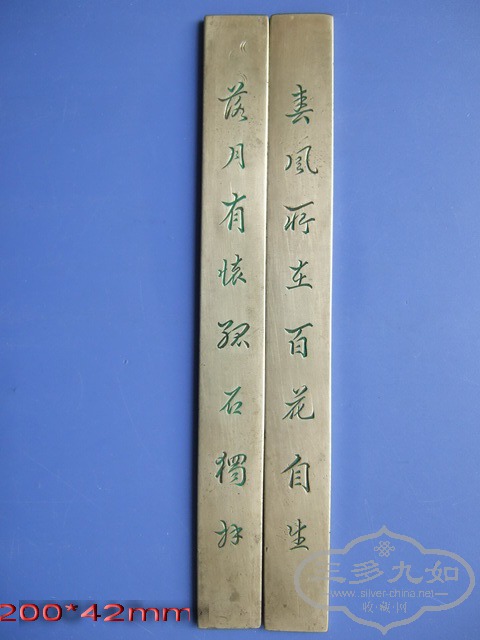 春風所在百花自生
落月有懷孤石獨
200*42mm
三多九如
www.silver-china.net
收藏网